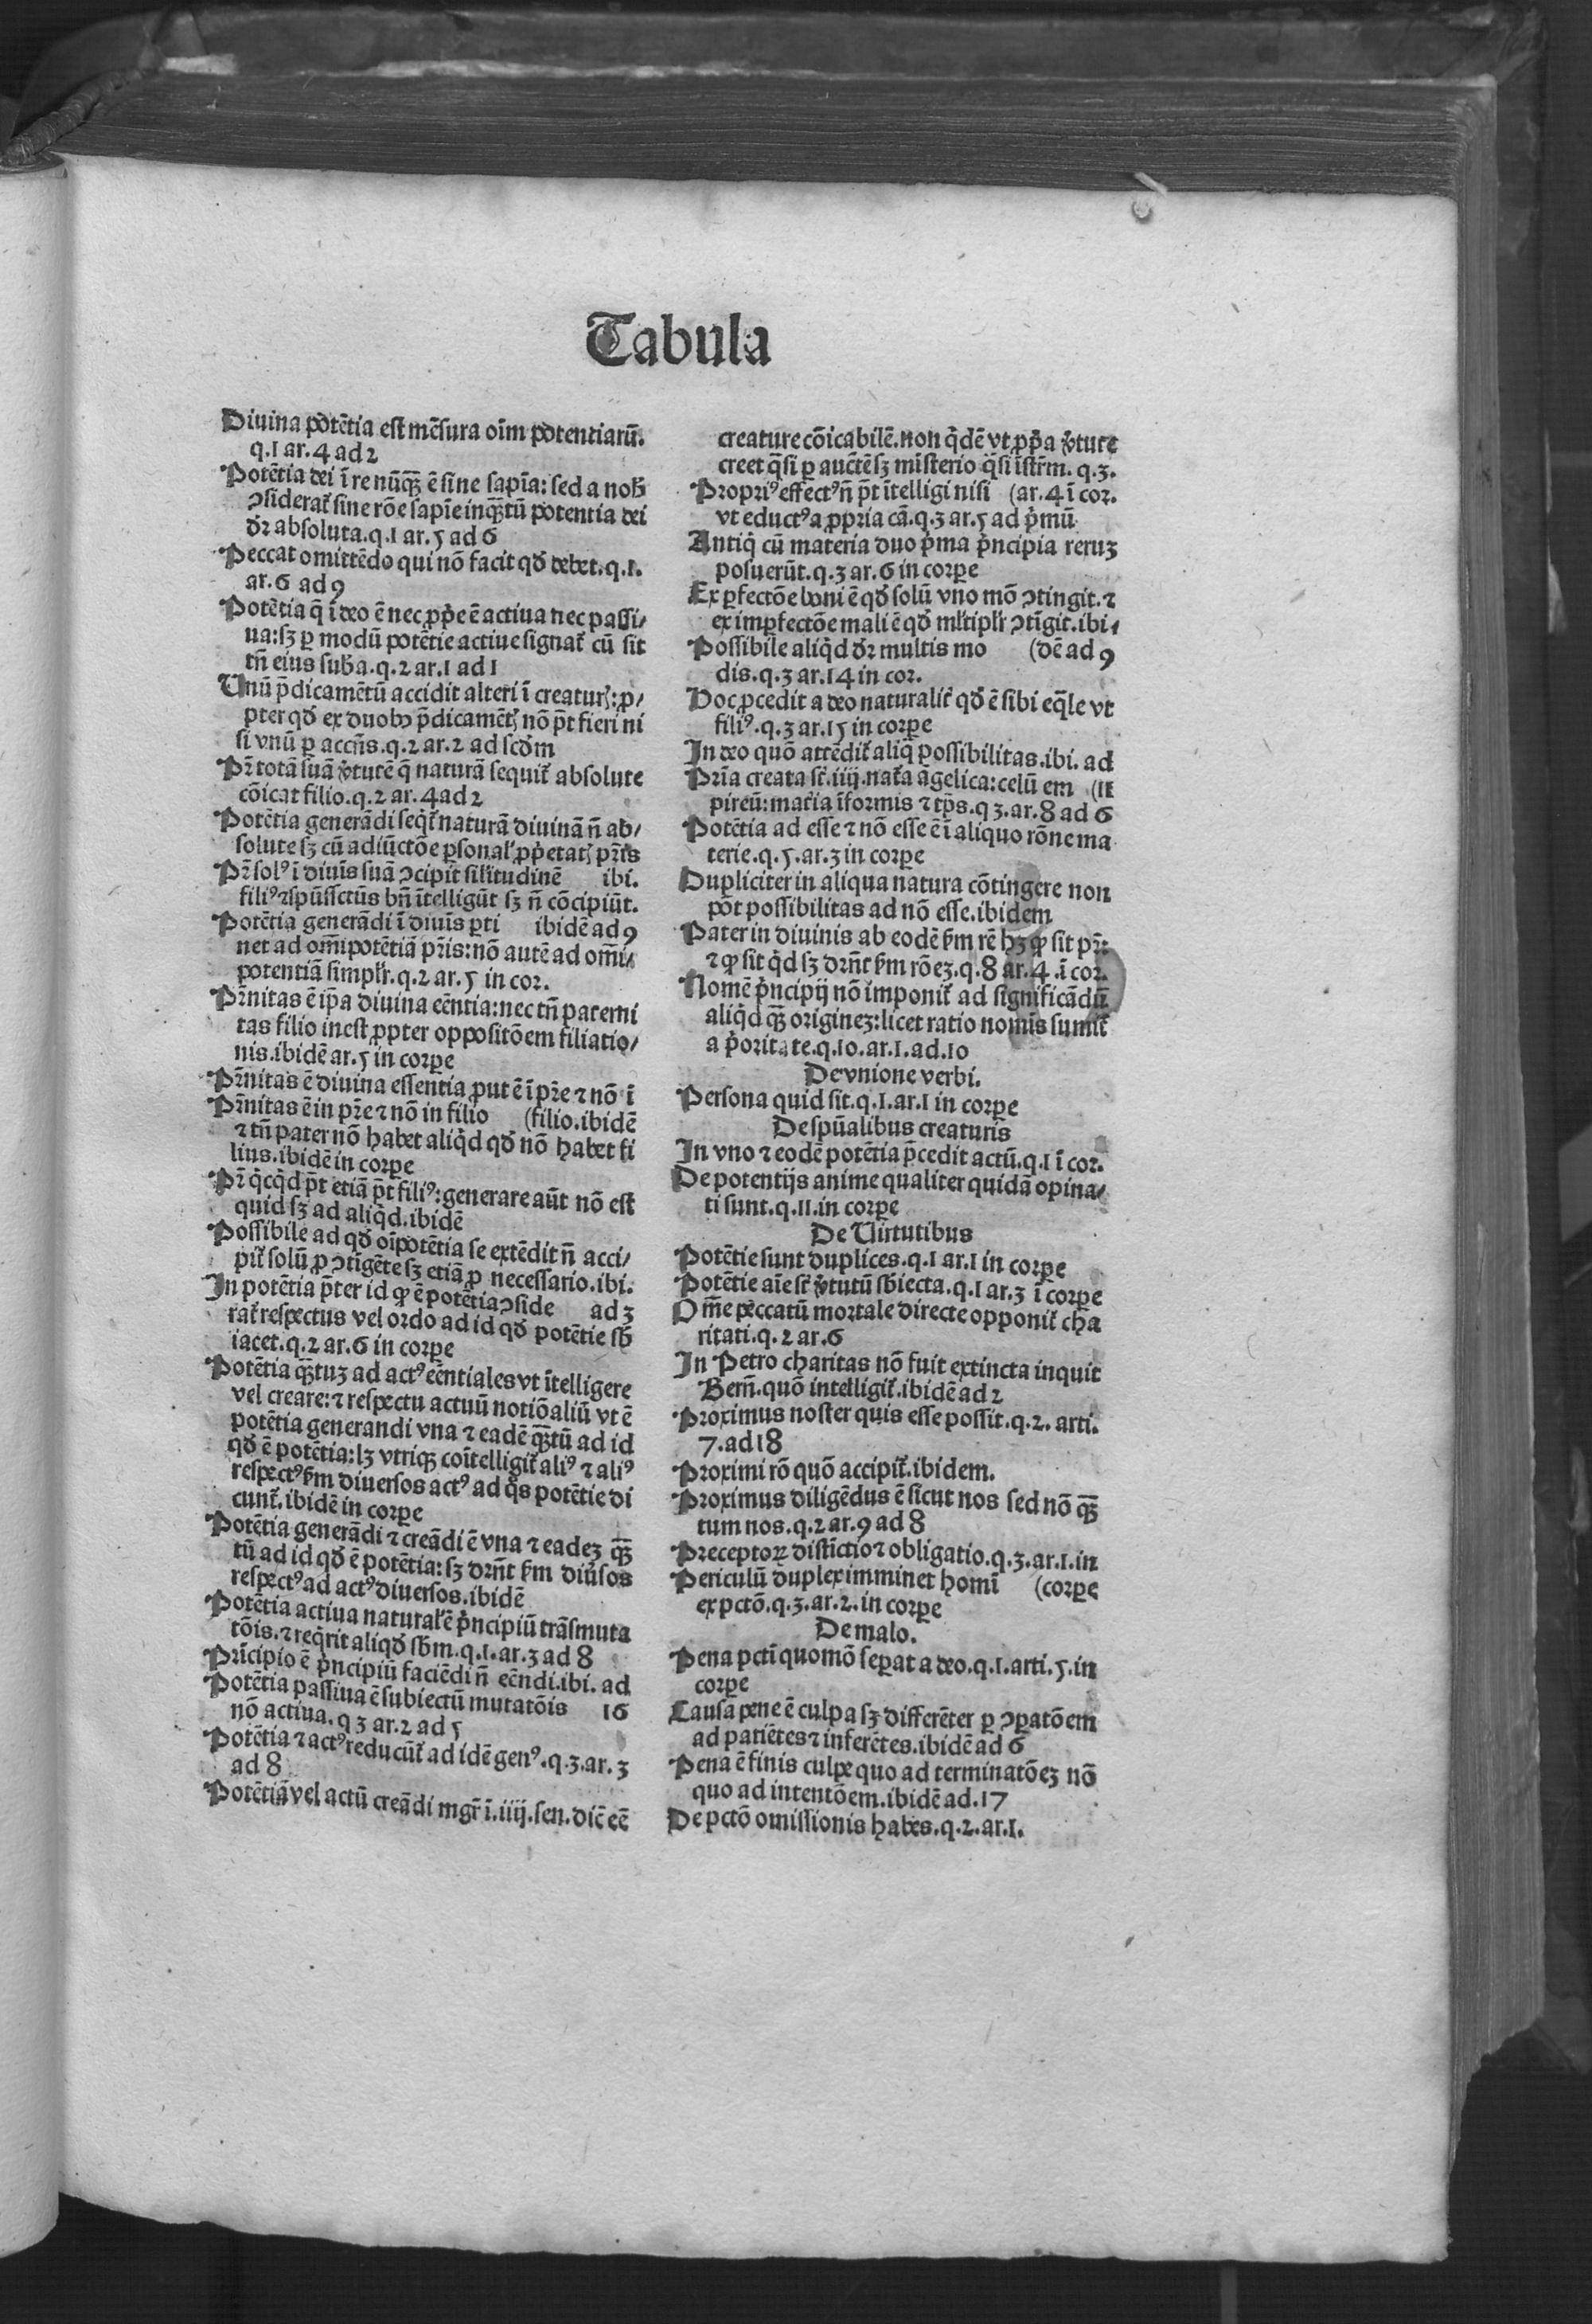 Tabula
Diuina potētia est mēsura oīm potentiarū.
q.1 ar.4 ad 2
Potētia dei ī re nūq̄ꝫ ē sine sapīa: sed a nob̄
ꝯsiderat᷑ sine rōe sapīe inq̄ꝫtū potentia dei
dr̄ absoluta.q.1 ar.5 ad 6
Peccat omittēdo qui nō facit qd̄ debet.q.1.
ar.6 ad 9
Potētia q̄ ī deo ē nec ꝓpe ē actiua nec passi/
ua:sꝫ ꝑ modū potētie actiue signat᷑ cū sit
tn̄ eius sub̄a.q.2 ar.1 ad 1
Unū p̄dicamētū accidit alteri ī creatur̄:ꝓ/
pter qd̄ ex duobꝰ p̄dicamēt̄ nō p̄t fieri ni
si vnū ꝑ accn̄s.q.2 ar.2 ad scd̄m
Pr̄ totā suā v̓tutē q̄ naturā sequit᷑ absolute
cōicat filio.q.2 ar.4 ad 2
Potētia generādi seq̇t᷑ naturā diuinā n̄ ab/
solute sꝫ cū adiūctōe ꝑsonal̓ ꝓpetat̄ pr̄is
Pr̄ solꝰ ī diuīs suā ꝯcipit sil̓itudinē ibi.
filiꝰ ⁊ spūssctūs bn̄ ītelligūt sꝫ n̄ cōcipiūt.
Potētia generādi ī diuīs ꝑti ibidē ad 9
net ad om̄ipotētiā pr̄is:nō autē ad om̄i/
potentiā simpl̓r.q.2 ar.5 in cor.
Pr̄nitas ē ip̄a diuina eēntia:nec tn̄ paterni
tas filio inest ꝓpter oppositōem filiatio/
nis.ibidē ar.5 in corpe
Pr̄nitas ē diuina essentia ꝓut ē ī pr̄e ⁊ nō ī
Pr̄nitas ē in pr̄e ⁊ nō in filio (filio.ibidē
⁊ tn̄ pater nō habet aliq̇d qd̄ nō habet fi
lius.ibidē in corpe
Pr̄ q̇cq̇d p̄t etiā p̄t filiꝰ:generare aūt nō est
quid sꝫ ad aliq̇d.ibidē
Possibile ad qd̄ oīpotētia se extēdit n̄ acci/
pit᷑ solū ꝓ ꝯtīgēte sꝫ etiā ꝓ necessario.ibi.
In potētia p̄ter id ꝙ ē potētia ꝯside ad 3
rat᷑ respectus vel ordo ad id qd̄ potētie sb̄
iacet.q.2 ar.6 in corpe
Potētia q̄ꝫtuꝫ ad actꝰ eēntiales vt ītelligere
vel creare:⁊ respectu actuū notiōaliū vt ē
potētia generandi vna ⁊ eadē q̄ꝫtū ad id
qd̄ ē potētia:lꝫ vtriqꝫ coītelligit᷑ aliꝰ ⁊ aliꝰ
respectꝰ ẜm diuersos actꝰ ad q̇s potētie di
cunt᷑.ibidē in corpe
Potētia generādi ⁊ creādi ē vna ⁊ eadeꝫ q̄ꝫ
tū ad id qd̄ ē potētia:sꝫ drn̄t ẜm diu̓sos
respectꝰ ad actꝰ diuersos.ibidē
Potētia actiua natural̓ ē ṗncipiū trāsmuta
tōis.⁊ req̇rit aliqd̄ sb̄m.q.1.ar.3 ad 8
Prīcipio ē ṗncipiū faciēdi n̄ eēndi.ibi.ad
Potētia passiua ē subiectū mutatōis 16
nō actiua.q 3 ar.2 ad 5
Potētia ⁊ actꝰ reducūt᷑ ad idē genꝰ.q.3.ar.3
ad 8
Potētiā vel actū creādi mgr̄ ī.iiij.sen.dic̄ eē
creature cōicabilē.non q̇dē vt ꝓpa v̓ture
creet q̄si ꝑ auctē sꝫ mīsterio q̄si īstr̄m.q.3.
Propriꝰ effectꝰ n̄ p̄t ītelligi nisi (ar.4 ī cor.
vt eductꝰ a ꝓpria cā.q.3 ar.5 ad ṗmū
Antiq̇ cū materia duo ṗma ṗncipia reruꝫ
posuerūt.q.3 ar.6 in corpe
Ex ꝑfectōe boni ē qd̄ solū vno mō ꝯtingit.⁊
ex imꝑfectōe mali ē qd̄ ml̓tipl̓r ꝯtīgit.ibi/
Possibile aliq̇d dr̄ multis mo (dē ad 9
dis.q.3 ar.14 in cor.
Hoc ꝓcedit a deo naturalit᷑ qd̄ ē sibi eq̄le vt
filiꝰ.q.3 ar.15 in corpe
In deo quō attēdit᷑ aliq̄ possibilitas.ibi.ad
Prīa creata st̄.iiij.nat᷑a āgelica:celū em (11
pireū:mat᷑ia īformis ⁊ tp̄s.q 3.ar.8 ad 6
Potētia ad esse ⁊ nō esse ē ī aliquo rōne ma
terie.q.5.ar.3 in corpe
Dupliciter in aliqua natura cōtingere non
pōt possibilitas ad nō esse.ibidem
Pater in diuinis ab eodē ẜm rē hꝫ ꝙ sit pr̄:
⁊ ꝙ sit q̇d sꝫ drn̄t ẜm rōeꝫ.q.8 ar.4.ī cor.
Nomē ṗncipij nō imponit᷑ ad significādū
aliq̇d q̄ꝫ origineꝫ:licet ratio nomīs sumit᷑
a ṗoritate.q.10.ar.1.ad.10
De vnione verbi.
Persona quid sit.q.1.ar.1 in corpe
De spūalibus creaturis
In vno ⁊ eodē potētia p̄cedit actū.q.1 ī cor.
De potentijs anime qualiter quidā opina/
ti sunt.q.11.in corpe
De Uirtutibus
Potētie sunt duplices.q.1 ar.1 in corpe
Potētie aīe st̄ v̓tutū sb̄iecta.q.1 ar.3 ī corpe
Om̄e peccatū mortale directe opponit᷑ cha
ritati.q.2 ar.6
In Petro charitas nō fuit extincta inquit
Bern̄.quō intelligit᷑.ibidē ad 2
Proximus noster quis esse possit.q.2.arti.
7.ad 18
Proximi rō quō accipit᷑.ibidem.
Proximus diligēdus ē sicut nos sed nō q̄ꝫ
tum nos.q.2 ar.9 ad 8
Preceptoꝝ distīctio ⁊ obligatio.q.3.ar.1.in
Periculū duplex imminet homī (corpe
ex pctō.q.3.ar.2.in corpe
De malo.
Pena pcti quomō seꝑat a deo.q.1.arti.5.in
corpe
Causa pene ē culpa sꝫ differēter ꝑ ꝯꝑatōem
ad patiētes ⁊ inferētes.ibidē ad 6
Pena ē finis culpe quo ad terminatōeꝫ nō
quo ad intentōem.ibidē ad.17
De pctō omissionis habes.q.2.ar.1.